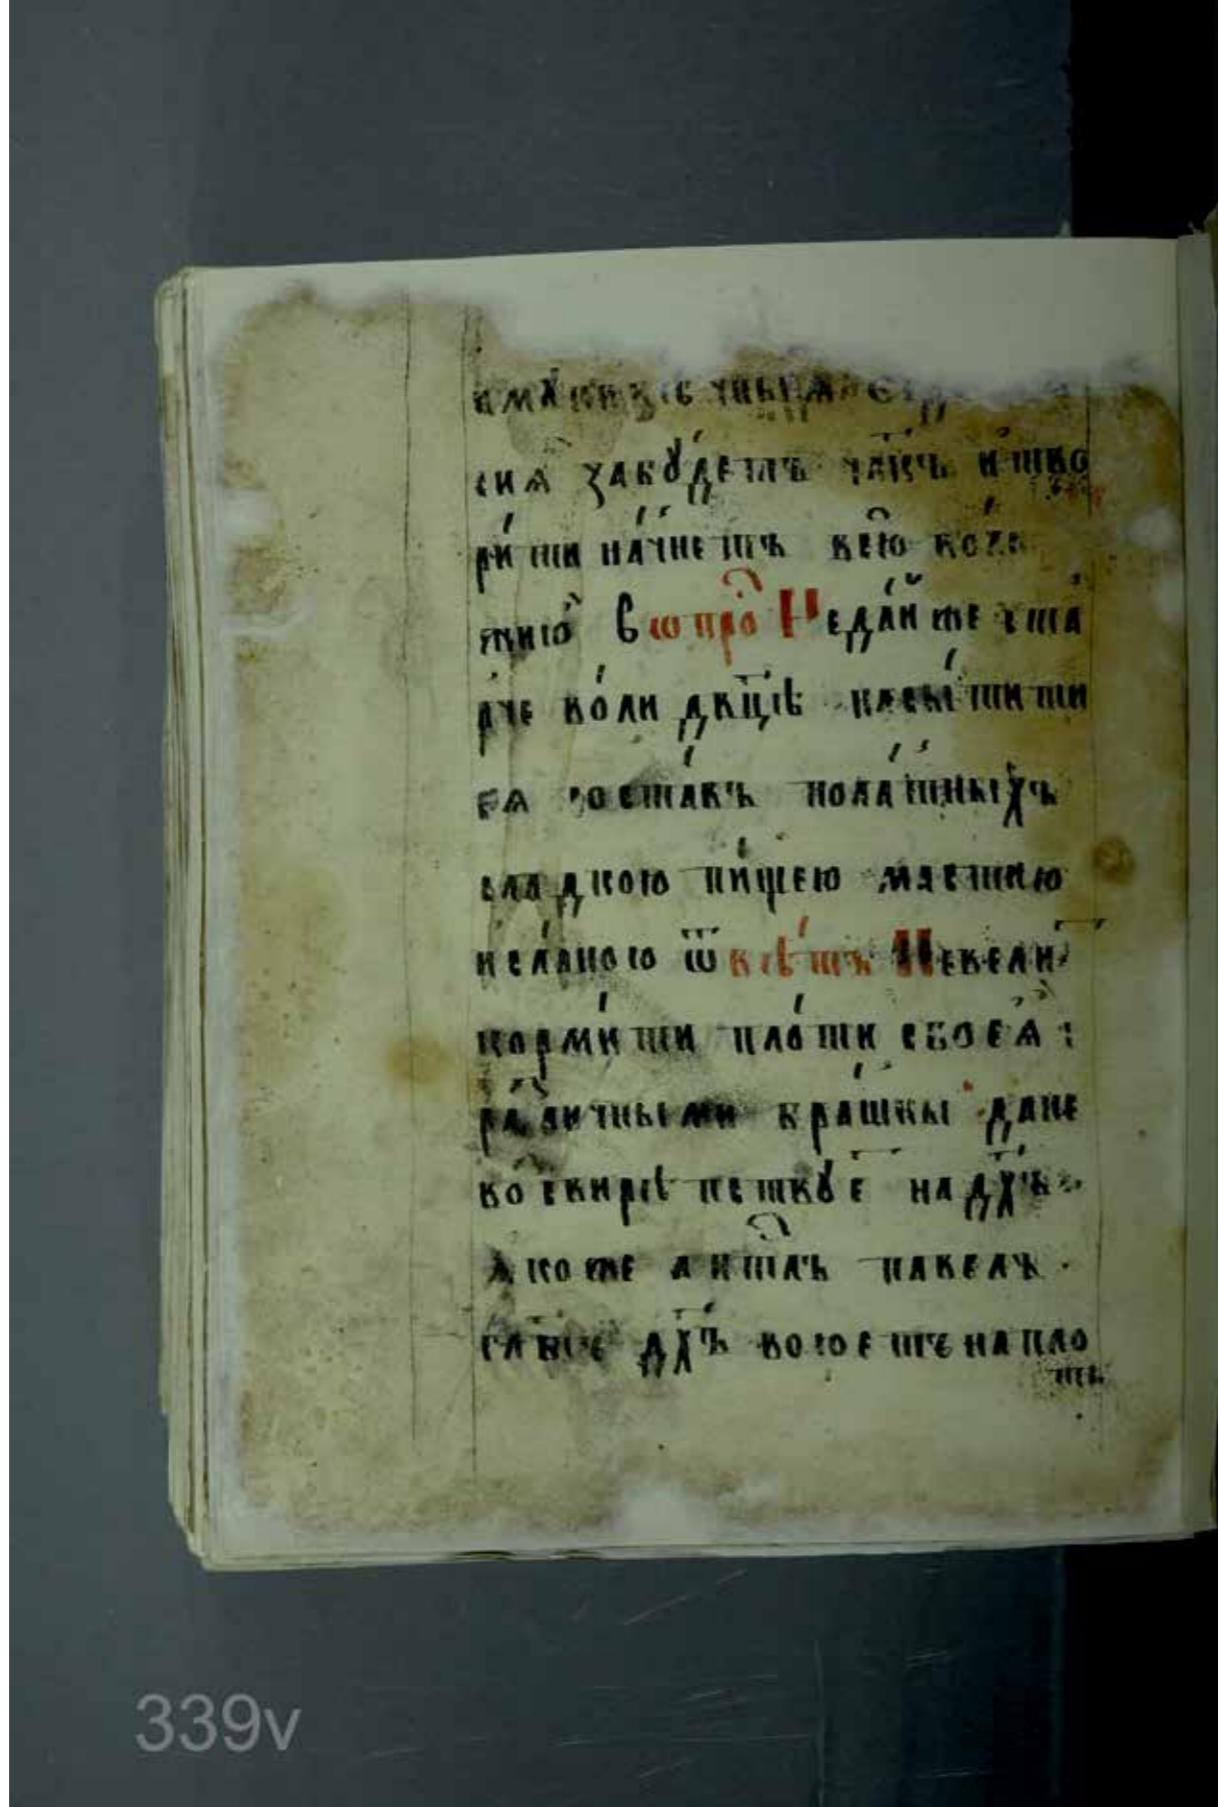 сиꙗ забꙋдетъ чл҃къ и тво
рити начнетъ всю волю
жию вопро Не дай же ста
рче коли дв҃цѣ насытити
сѧ ѿ остакъ полатныхъ
сладкою пищею мастию
и сланою ѿвѣтъ Не вели
кормити плоти своеѧ
различными брашны да не
воскирѣпетвуе на дх҃ъ
ꙗкоже апⷭ҇лъ павелъ
гл҃еть дх҃ъ воюеть на пло
ть
339v